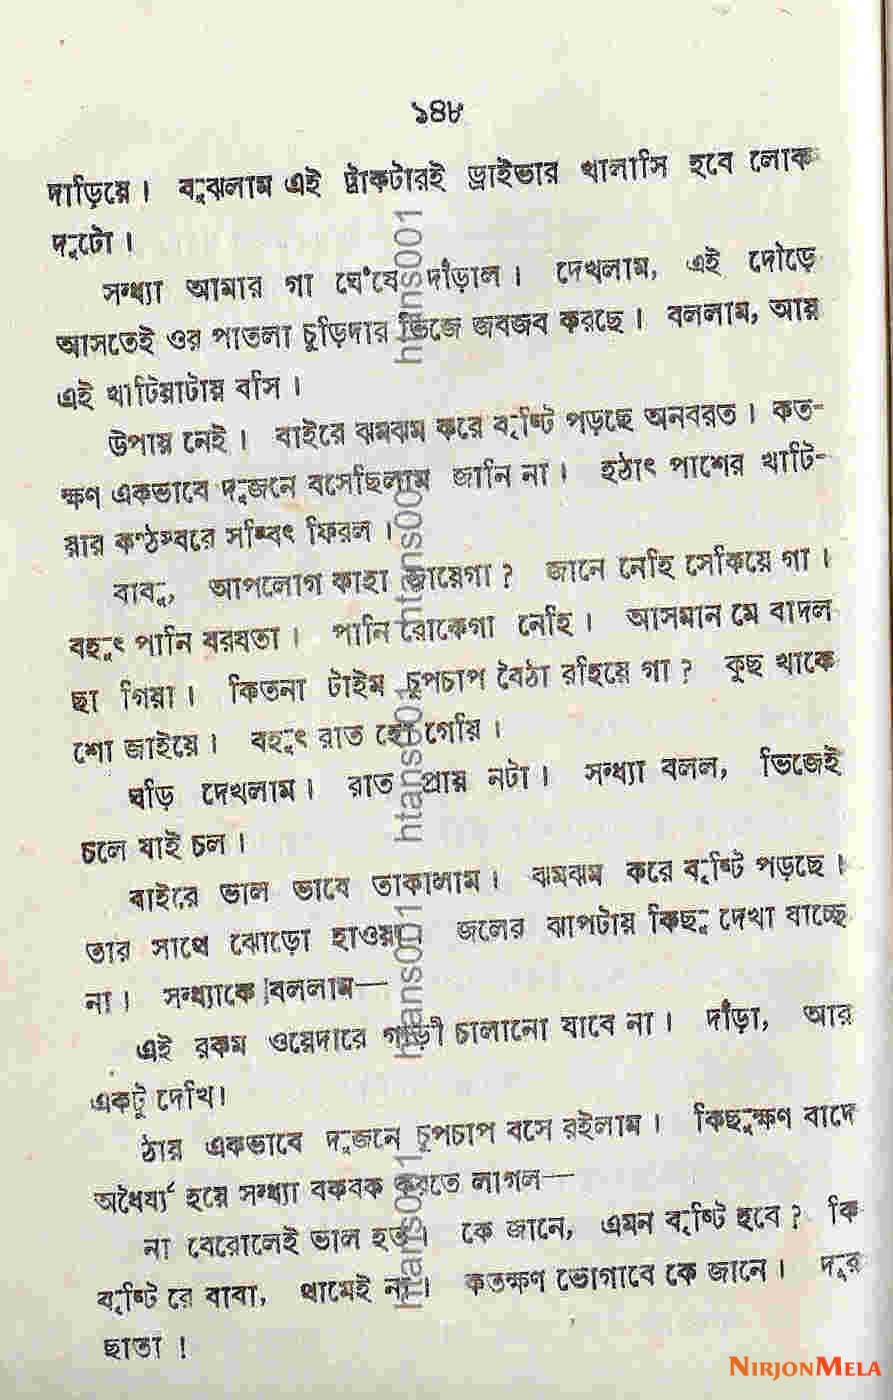 ১৪৮
দাড়িয়ে। বুঝলাম এই ট্রাকটারই ড্রাইভার খালাসি হবে লোক
দুটো।
সন্ধ্যা আমার গা ঘেঁষে দাঁড়াল। দেখলাম, এই দৌড়ে
আসতেই ওর পাতলা চুড়িদার ভিজে জবজব করছে। বললাম, আয়
এই খাটিয়াটায় বসি।
উপায় নেই। বাইরে ঝমঝম করে বৃষ্টি পড়ছে অনবরত। কত-
ক্ষণ একভাবে দুজনে বসেছিলাম জানি না। হঠাৎ পাশের খাটি-
য়ার কণ্ঠস্বরে সম্বিৎ ফিরল।
বাবু, আপলোগ কাহা জায়েগা? জানে নেহি সেকিয়ে গা।
বহুৎ পানি বরষতা। পানি রোকেগা নেহি। আসমান মে বাদল
ছা গিয়া। কিতনা টাইম চুপচাপ বৈঠা রহিয়ে গা? কুছ খাকে
শো জাইয়ে। বহুৎ রাত হো গেয়ি।
ঘড়ি দেখলাম। রাত প্রায় নটা। সন্ধ্যা বলল, ভিজেই
চলে যাই চল।
বাইরে ভাল ভাবে তাকালাম। ঝমঝম করে বৃষ্টি পড়ছে।
তার সাথে ঝোড়ো হাওয়া। জলের ঝাপটায় কিছু দেখা যাচ্ছে
না। সন্ধ্যাকে বললাম—
এই রকম ওয়েদারে গাড়ী চালানো যাবে না। দাঁড়া, আর
একটু দেখি।
ঠায় একভাবে দুজনে চুপচাপ বসে রইলাম। কিছুক্ষণ বাদে
অধৈর্য্য হয়ে সন্ধ্যা বকবক করতে লাগল—
না বেরোলেই ভাল হত। কে জানে, এমন বৃষ্টি হবে? কি
বৃষ্টি রে বাবা, থামেই না। কতক্ষণ ভোগাবে কে জানে। দুর
ছাতা!
htans001
htans001
htans001
htans001
htans001
NIRJONMELA